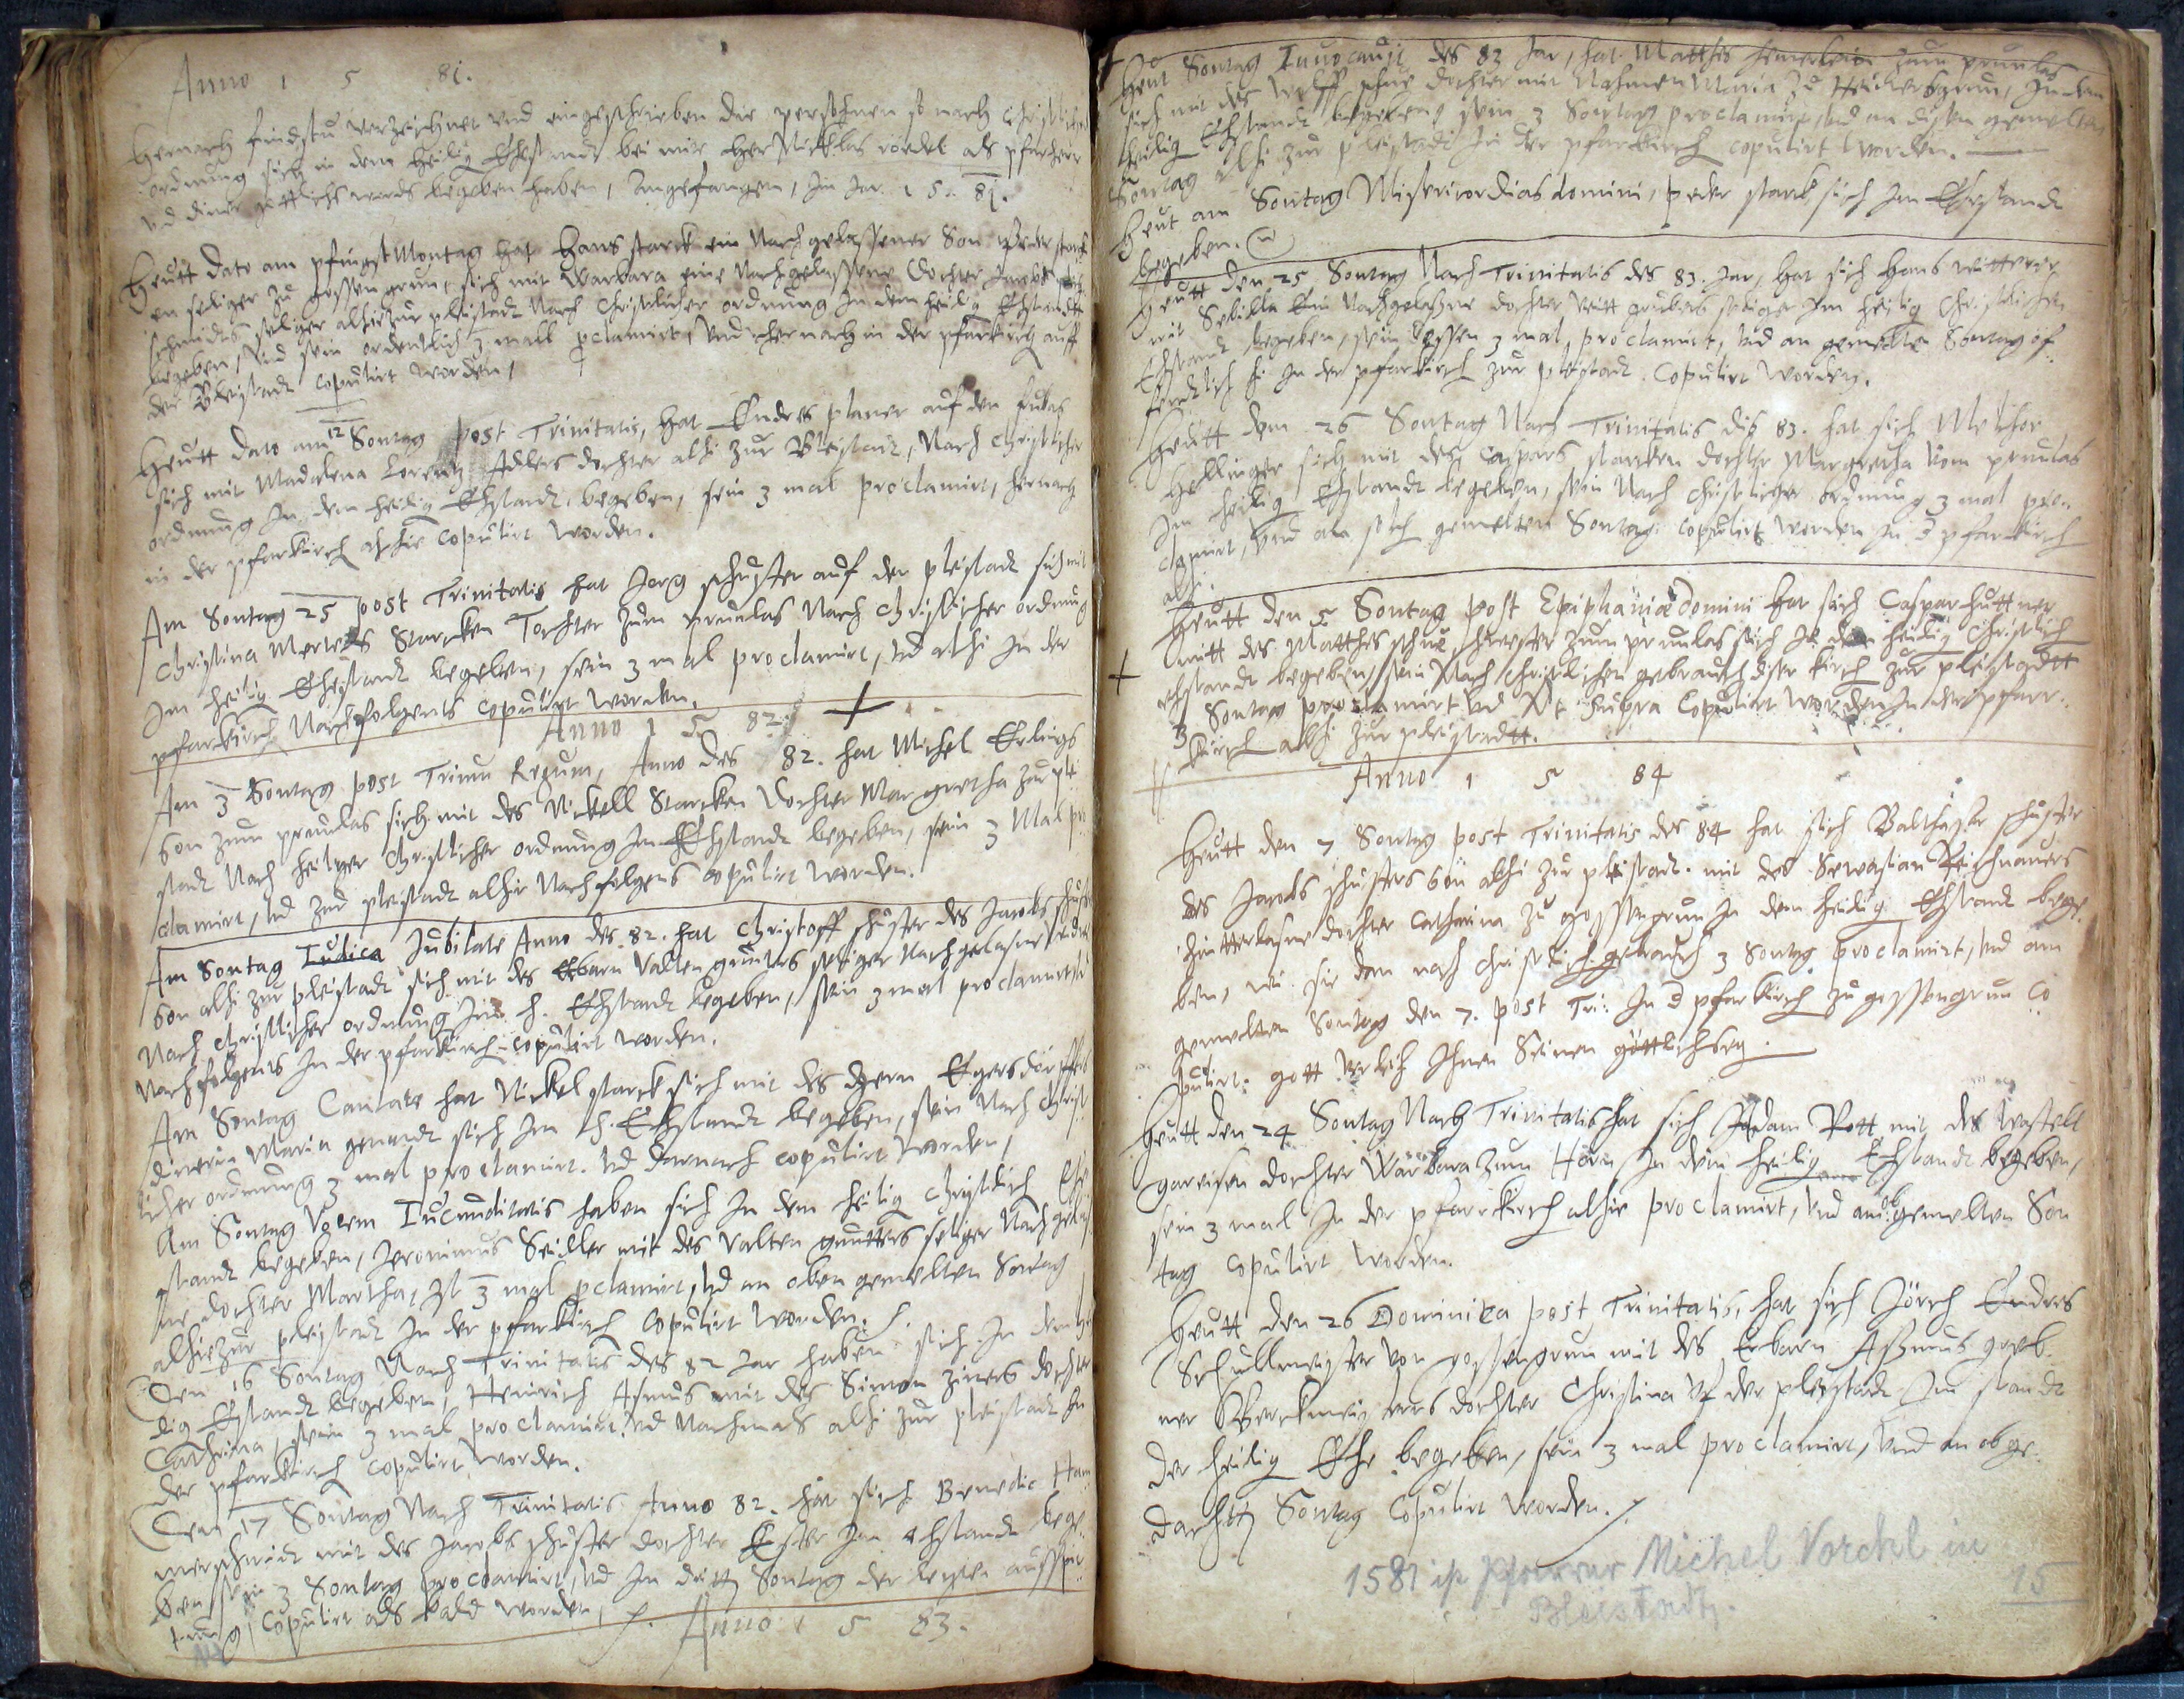 Anno 1 5 81.
Hernach findstu verzeichnet und eingeschrieben die personen so nach christlicher
ordnung sich in dem heilig Ehestandt bei mir her Nicklas rödel als pfarherr
vnd diner göttlichs words begeben haben, Angefangen, Im Jar. 1 5. 81.
Heutt dato am pfingst Montag hat Hans starck ein Nachgelassener Son Peder starck
en seliger zu gossengrun, sich mit Warbara eine Nachgelassene dochter Jacobs
schmides seliger alhie zur pleistadt Nach christlicher ordnung In dem heilig Ehstandt
begeben, vnd sein ordentlich 3 mall pclamirt, vnd hernach in der pfarkirch auff
der Bleistadt copulirt worden,
Heutt dato am 12 Sontag post Trinitatis, hat Endres planer auf den
sich mit Madalena Lorentz Adlers dochter alhi zur Bleistadt, Nach christlicher
ordnung In dem heilig Ehstandt begeben, sein 3 mal proclamirt, hernach
in der pfarkirch alhie copulirt worden.
Am Sontag 25 post Trinitatis hat Jorg schuster auf der pleistadt sich mit
Christina Mertens Starcken Tochter zum prunlas Nach christlicher ordnung
Im heilig Ehestandt begeben, sein 3 mal proclamirt, vnd alhi In der
pfarkirch Nachfolgents copulirt worden.
Anno 1 5 82.
Am 3 Sontag post Trium Regum, Anno des 82. hat Michel Erlings
Son zum prunlas sich mit des Nickell Starcken dochter Margretha zu plei
stadt Nach heiliger christlicher ordnung Im Ehstandt begeben, sein 3 Mal pro
clamirt, vnd zur pleistadt alhie Nachfolgens copulirt worden.
Am Sontag Iudica Jubilate Anno des 82. hat Christoff schuster des Jacobs schusters
Son alhi zur pleistadt sich mit des Erbarn Valten gunters seliger Nachgelasne
Nach christlicher ordnung Ins h. Ehstandt begeben, sein 3 mal proclamirt
Nachfolgents In der pfarkirch copulirt worden.
Am Sontag Cantate hat Nickel starck sich mit des hern Egersdörffers
dinerin Maria genandt sich Im h. Ehstandt begeben, sein Nach christ
licher ordnung 3 mal proclamirt. vnd darnach copulirt worden,
Am Sontag Vocem Iucunditatis haben sich In dem heilig christlich Ehe
standt begeben, Jeronimus Seidler mit des Valten gunters seliger Nachgelas
ne dochter Martha, Ist 3 mal pclamirt, vnd an oben gemelten Sontag
alhie zur pleistadt In der pfarkirch copulirt worden.
Den 16 Sontag Nach Trinitatis des 82 Jar haben sich In dem hei
lig Ehstandt begeben, Heinrich Asmus mit des Simon ziners dochter
Cathrina, sein 3 mal proclamirt. vnd Nachmals alhi zur pleistadt In
der pfarkirch copulirt worden.
Den 17 Sontag Nach Trinitatis Anno 82. hat sich Benedic Ham
merschmidt mit des Jacobs schuster dochter Ester Im ehstandt bege
ben, sein 3 Sontag proclamirt, vnd Im dritt Sontag der
tung, Copulirt als bald worden,
Anno 1 5 83.
Heut Sontag Inuocauit des 83 Jar, hat Matthes zum prunlas
sich mit des Wolff dochter mit Nahmen Maria zu Heinersgrun, In den
heilig Ehstandt begeben, sein 3 Sontag proclamirt, vnd an disen gemelten
Sontag alhi zur pleistadt In der pfarkirch copulirt worden.
Heut am Sontag Misericordias domini, peder starck sich Im Ehestandt
begeben.
Heutt den 25 Sontag Nach Trinitatis des 83. Jar, hat sich Hans
mit Sebilla Ein Nachgelasne dochter Veitt grubers seliger Im heilig christlichen
Ehstandt begeben, sein dessen 3 mal proclamirt, vnd an gemelten Sontag öf
fendtlich hi In der pfarkirch zur pleistadt. Copulirt worden.
Heutt dem 26 Sontag Nach Trinitatis dis 83. hat sich Melchor
Hellinger sich mit des Caspars starcken dochter Margretha vom prunlas
Im heilig Ehstandt begeben, sein Nach christlicher ordnung 3 mal pro
clamirt, vnd am solch gemelten Sontag. copulirt worden In d pfarkirch
alhi.
Heutt den 5 Sontag post Epiphaniæ domini hat sich Caspar huttner
mitt des Matthes schwester zum prunlas sich In dem heilig christlich
ehstandt begeben, sein Nach christlichen gebrauch diser kirch zur pleistadtt
3 Sontag proclamirt vnd Vt supra Copulirt worden In der pfarr
kirch alhi zur pleistadtt.
Anno 1 5 84
Heutt den 7 Sontag post Trinitatis des 84 hat sich Balthaser schuster
des Jacobs schusters Son alhi zur pleistadt. mit des Sewastian Reichnauers
hintterlasne dochter Catharina zu gossengrun In dem heilig Ehstandt bege
ben, wie sie dan nach christlich gebrauch 3 Sontag proclamirt, vnd am
gemelten Sontag den 7. post Tri: In d pfarkirch zu gossengrun co
pulirt. gott verleih Ihnen Seinen göttlichseg.
Heutt den 24 Sontag Nach Trinitatis hat sich Adam Rott mit des Wastell
gareisen dochter Warbara zum Horn In dem heilig Ehstandt begeben,
sein 3 mal In der pfarrkirch alhie proclamirt, vnd am ob gemelten Son
tag copulirt worden.
Heutt den 26 Dominica post Trinitatis, hat sich Jörch Endres
Schullmeister von gossengrun mit des Erbarn Assmus greb
ner Berckmeisters dochter Christina vf der pleistadt Im standt
der heilig Ehe begeben, sein 3 mal proclamirt, vnd an obge
dachtt Sontag Copulirt worden.
1581 ist Pfarrer Michel Vorchel in
Bleistadt.
15